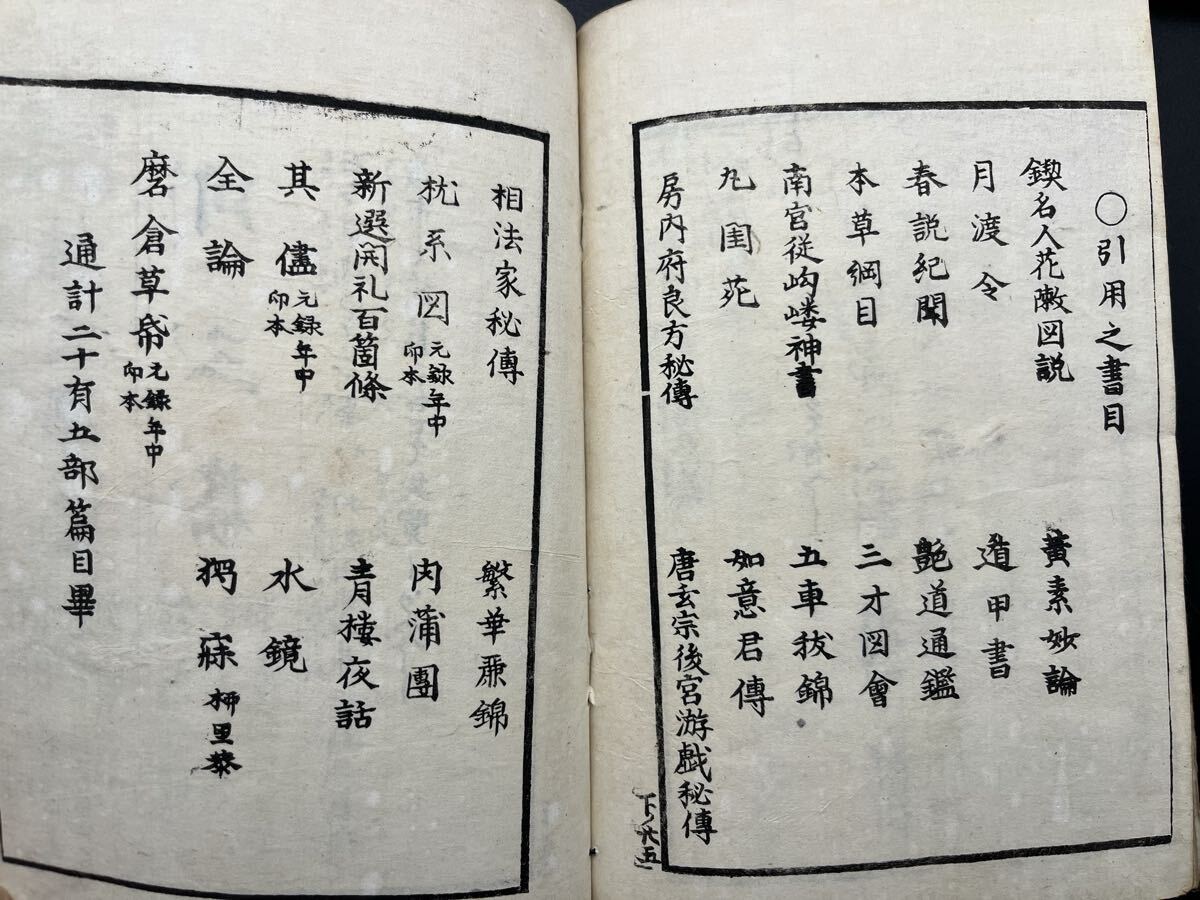 〇引用之書目
鍥名人花陣図説　黄素妙論
月渡令　遁甲書
春説紀聞　艶道通鑑
本草綱目　三才図會
南宮従岣嶁神書　五車抜錦
九閨苑　如意君傳
房内府良方秘傳　唐玄宗後宮游戯秘傳
下ノ廿五
相法家秘傳　繁華麗錦
枕系図 元録年中印本　肉蒲團
新選開礼百箇條　青楼夜話
其儘 元録年中印本　水鏡
全論　寤寐 柳里恭
磨倉草紙 元録年中印本
通計二十有五部篇目畢